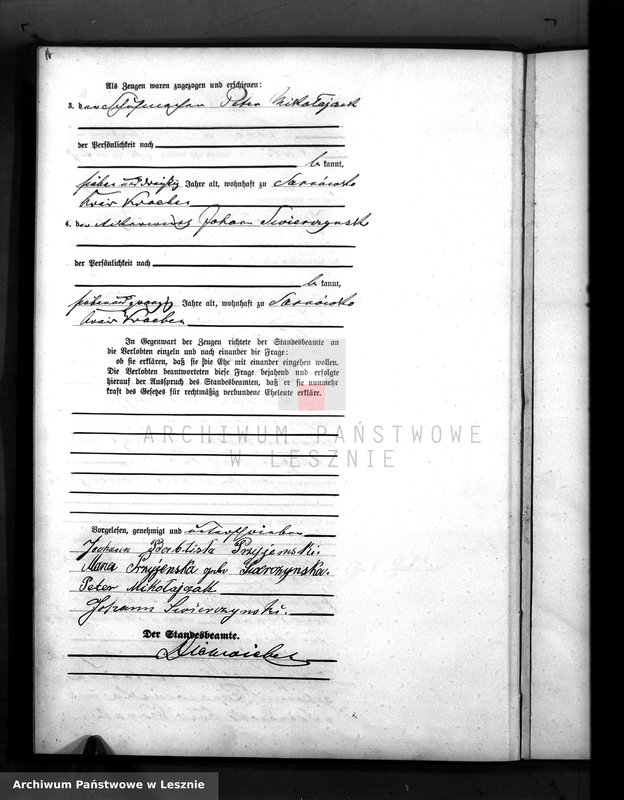 Als Zeugen waren zugezogen und erschienen:
3. der Schuhmacher Peter Mikołajczak
der Persönlichkeit nach
be kannt,
sieben und dreißig Jahre alt, wohnhaft zu Sarnowko
Kreis Kroeben
4. der Johann Swierczynski
der Persönlichkeit nach
be kannt,
sieben und zwanzig Jahre alt, wohnhaft zu Sarnowko
Kreis Kroeben
In Gegenwart der Zeugen richtete der Standesbeamte an
die Verlobten einzeln und nach einander die Frage:
ob sie erklären, daß sie die Ehe mit einander eingehen wollen.
Die Verlobten beantworteten diese Frage bejahend und erfolgte
hierauf der Ausspruch des Standesbeamten, daß er sie nunmehr
kraft des Gesetzes für rechtmäßig verbundene Eheleute erkläre.
ARCHIWUM PAŃSTWOWE
W LESZNIE
Vorgelesen, genehmigt und unterschrieben
Johann Babtista Przyjemski.
Maria Przyjemska geb. Swierczynska.
Peter Mikołajczak
Johann Swierczynski.
Der Standesbeamte.
Archiwum Państwowe w Lesznie